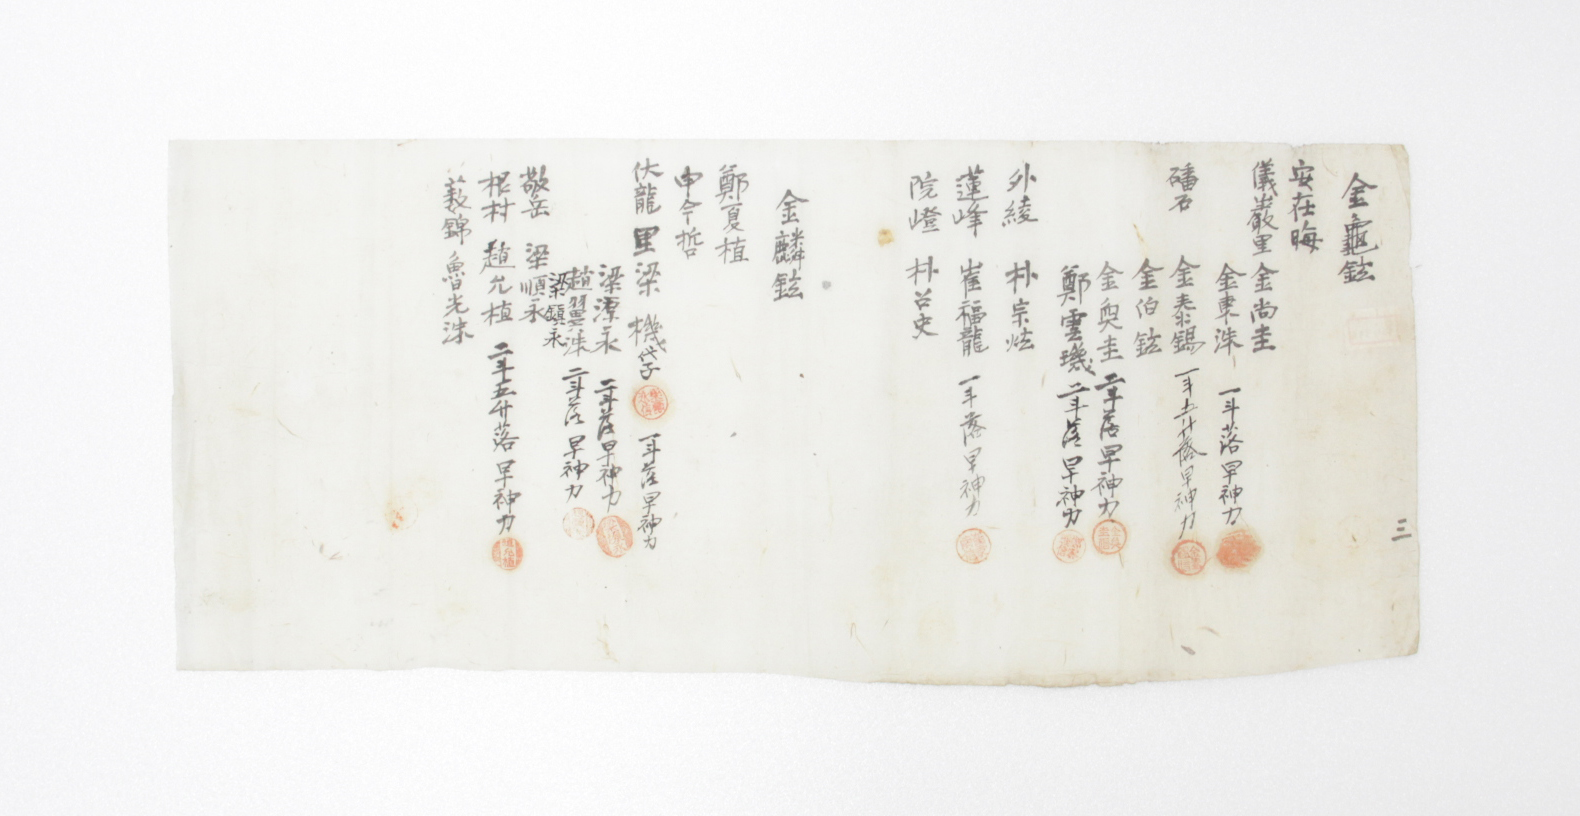 三
金龜鉉
安在晦
儀巖里 金尚圭
金東洙 一斗落 早神力
磻石 金泰錫 一斗五升落 早神力
金伯鉉
金奭圭 二斗落 早神力
鄭雲璣 二斗落 早神力
外綾 朴宗炫
蓮峰 崔福龍 一斗落 早神力
院嶝 朴召史
金麟鉉
鄭夏植
申今哲
伏龍里 梁機 代子 一斗落 早神力
梁澴永 二斗落 早神力
趙翼洙 二斗落 早神力
梁鎭永
敬岳 梁順永
根村 趙允植 二斗五升落 早神力
蓑錦 魯光洙